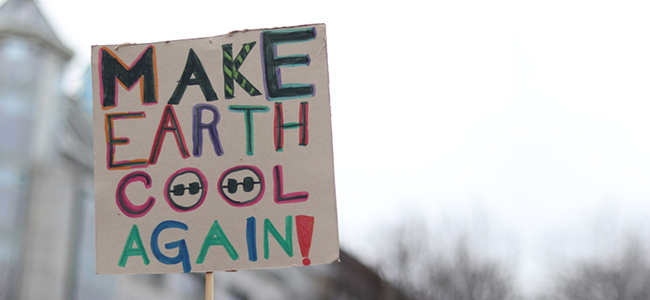 MAKE
EARTH
COOL
AGAIN!